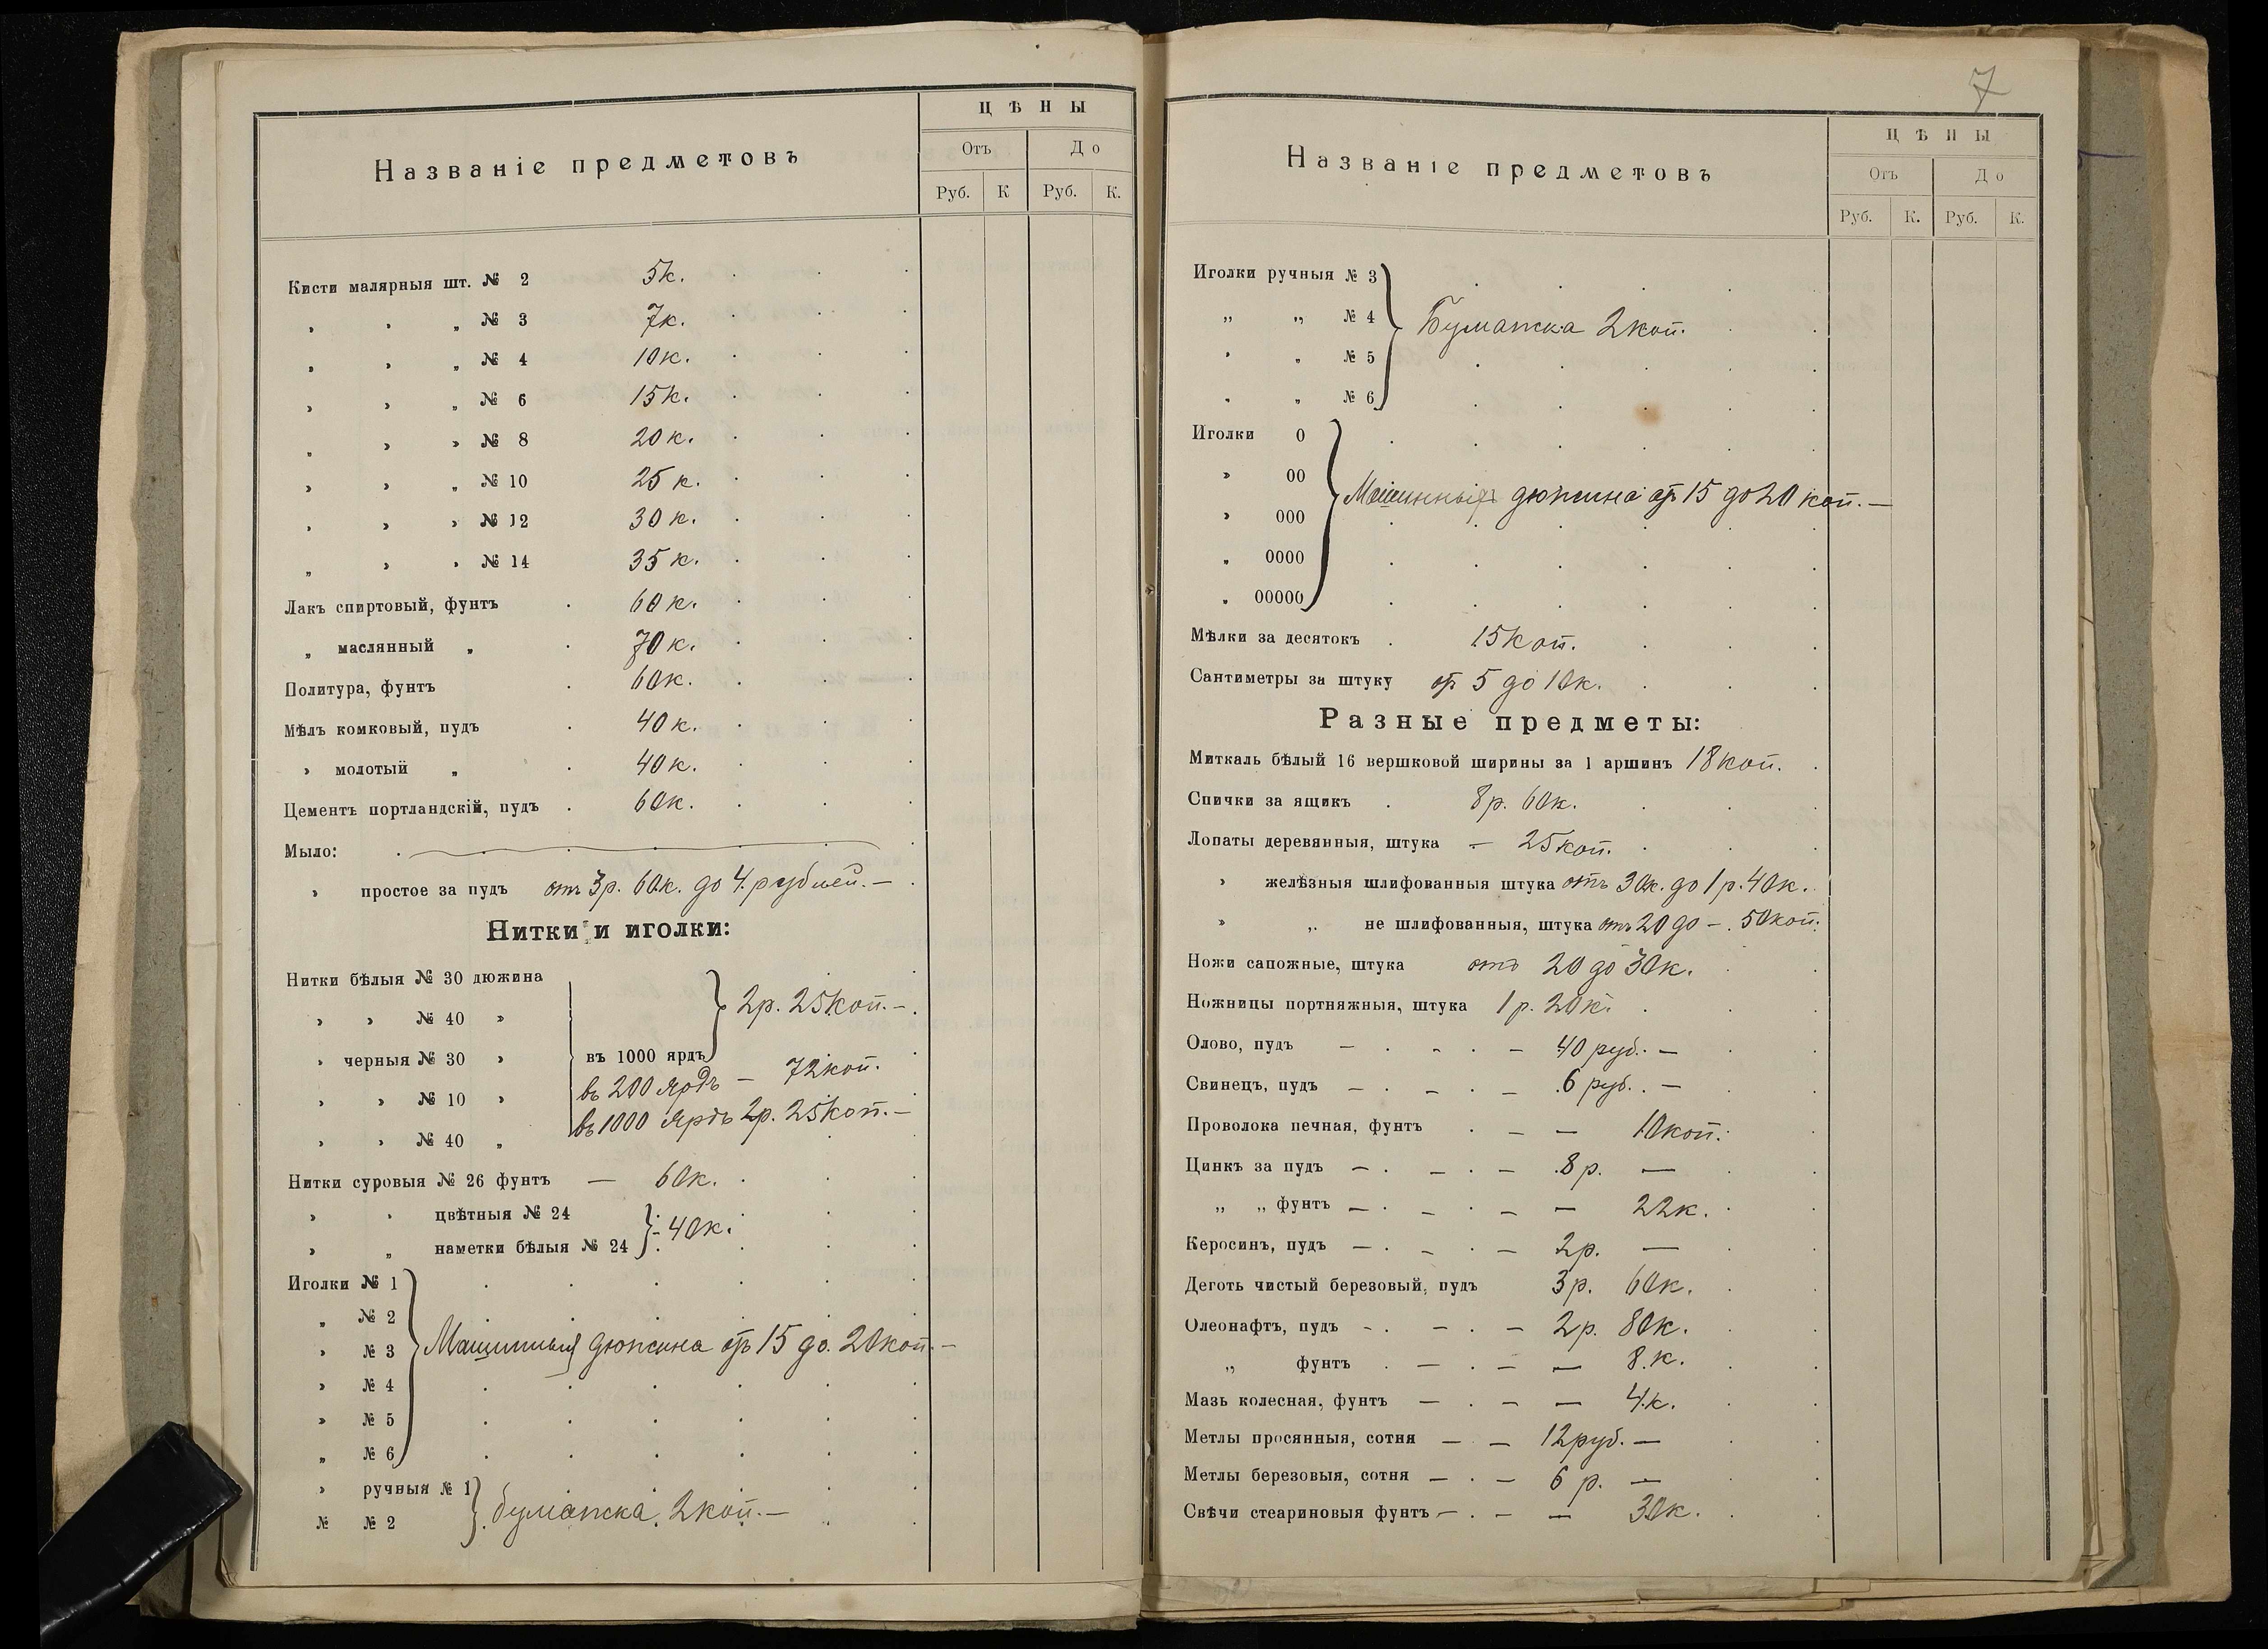 Названіе предметовъ
ЦѢНЫ
Отъ До
Руб. К Руб. К.
Кисти малярныя шт. № 2 5к.
„ „ „ № 3 7к.
„ „ „ № 4 10к.
„ „ „ № 6 15к.
„ „ „ № 8 20к.
„ „ „ № 10 25к.
„ „ „ № 12 30к.
„ „ „ № 14 35к.
Лакъ спиртовый, фунтъ 60к.
„ маслянный „ 70к.
Политура, фунтъ 60к.
Мѣлъ комковый, пудъ 40к.
„ молотый „ 40к.
Цементъ портландскій, пудъ 60к.
Мыло:
„ простое за пудъ отъ 3р. 60к. до 4 рублей.—
Нитки и иголки:
Нитки бѣлыя № 30 дюжина
„ „ № 40 „ 2р. 25коп.—
„ черныя № 30 „ въ 1000 ярдъ
въ 200 ярдъ — 72коп.
„ „ № 10 „
въ 1000 ярдъ 2р. 25коп.—
„ „ № 40 „
Нитки суровыя № 26 фунтъ — 60к.
„ „ цвѣтныя № 24
40к.
„ „ наметки бѣлыя № 24
Иголки № 1
„ № 2
„ № 3 Машинныя дюжина отъ 15 до 20коп.—
„ № 4
„ № 5
„ № 6
„ ручныя № 1
№ № 2 бумажка 2коп.—
7
Названіе предметовъ
ЦѢНЫ
Отъ До
Руб. К. Руб. К.
Иголки ручныя № 3
„ „ № 4 Бумажка 2коп.
„ „ № 5
„ „ № 6
Иголки 0
„ 00
Машинныя дюжина отъ 15 до 20 коп.—
„ 000
„ 0000
„ 00000
Мѣлки за десятокъ 15коп.
Сантиметры за штуку отъ 5 до 10к.
Разные предметы:
Миткаль бѣлый 16 вершковой ширины за 1 аршинъ 18коп.
Спички за ящикъ 8р. 60к.
Лопаты деревянныя, штука — 25коп.
„ желѣзныя шлифованныя штука отъ 30к. до 1р. 40к.
„ „ не шлифованныя, штука отъ 20 до — 50коп.
Ножи сапожные, штука отъ 20 до 30к.
Ножницы портняжныя, штука 1р. 20к.
Олово, пудъ — — — 40 руб. —
Свинецъ, пудъ — — — 6 руб. —
Проволока печная, фунтъ — — 10коп.
Цинкъ за пудъ — — — 8р. —
„ „ фунтъ — — — — 22к.
Керосинъ, пудъ — — — 2р. —
Деготь чистый березовый, пудъ 3р. 60к.
Олеонафтъ, пудъ — — — 2р. 80к.
„ фунтъ — — — 8к.
Мазь колесная, фунтъ — — — 4к.
Метлы просянныя, сотня — — 12руб. —
Метлы березовыя, сотня — — 6 р. —
Свѣчи стеариновыя фунтъ — — — 30к.